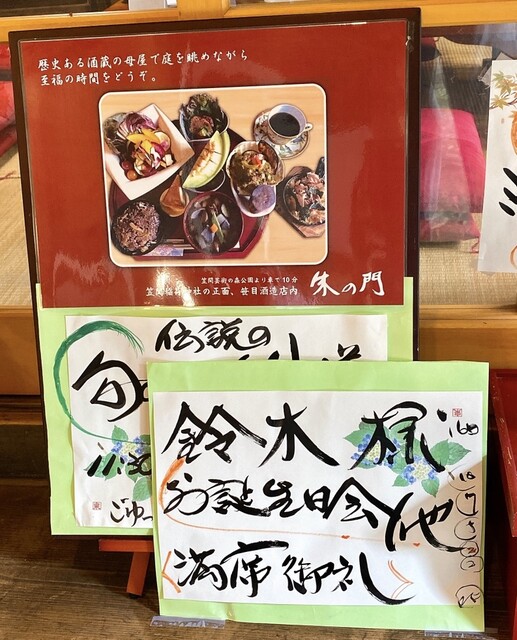 歴史ある酒蔵の母屋で庭を眺めながら
至福の時間をどうぞ。
笠間芸術の森公園より車で10分
笠間稲荷神社の正面、笹目酒造店内
朱の門
伝説の
旬
ごゆ
鈴木様
お誕生日会他
満席御礼